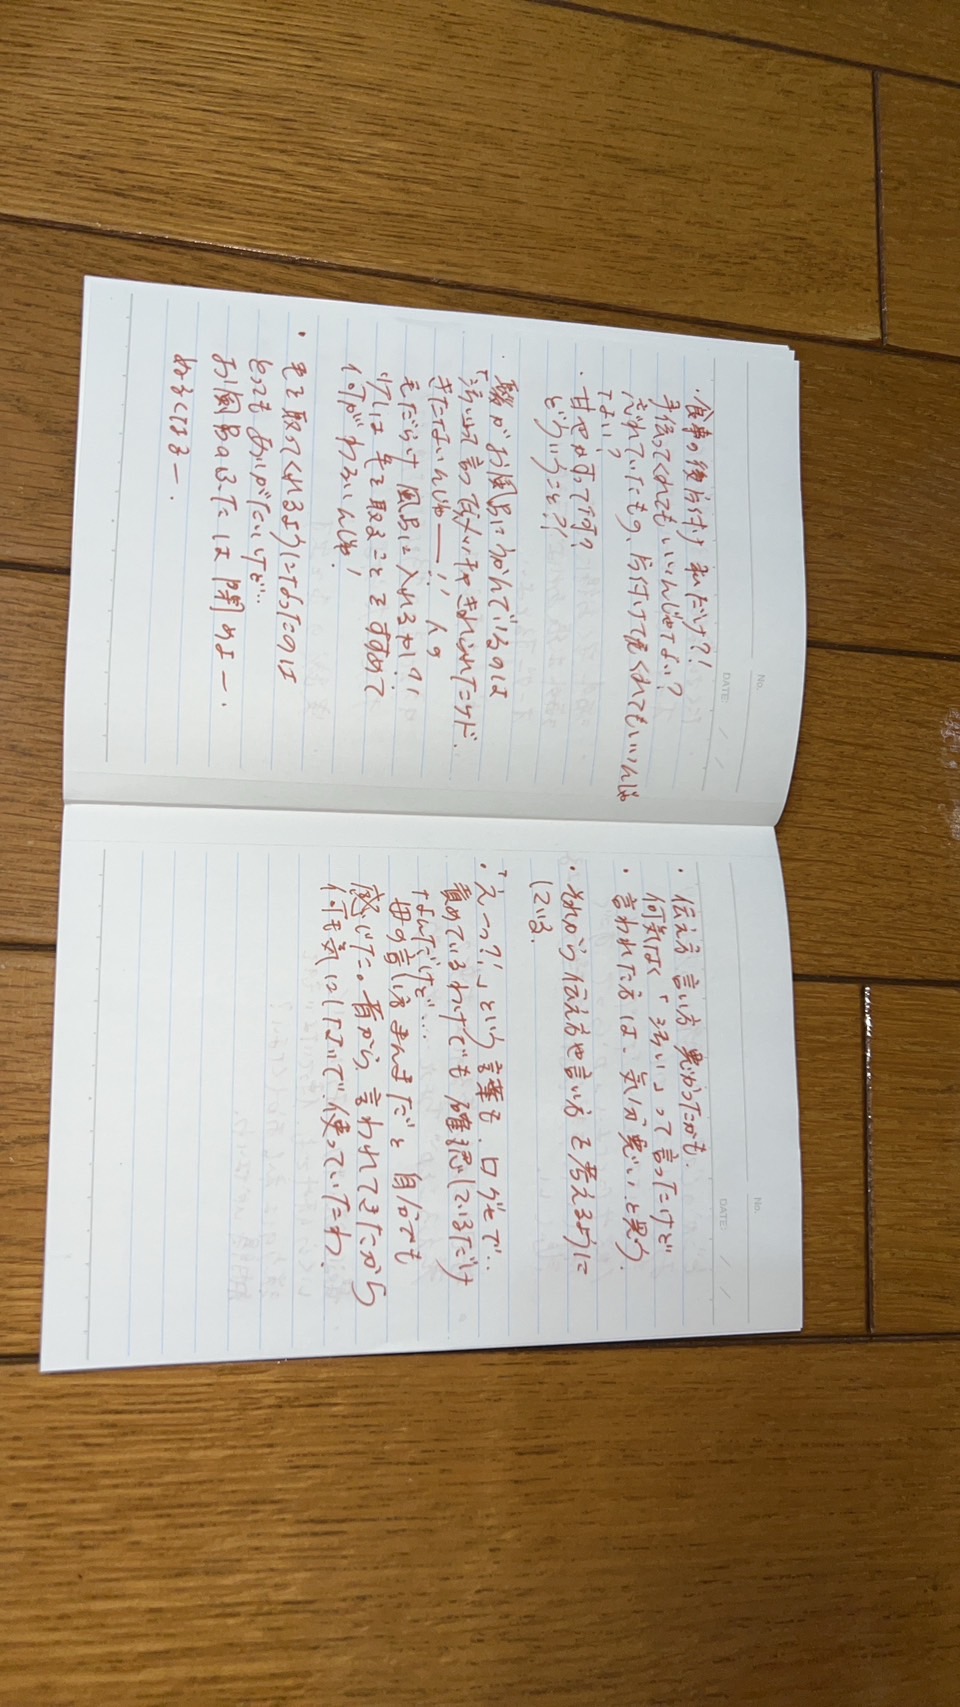 No.
DATE
・食事の後片付け 私だけ?!
手伝ってくれてもいいんじゃない?
それていたもの、片付けて戻してくれてもいいんじゃ
ない?
・甘やかすって何?
どういうこと?!
・髪がお風呂にうかんでいるのは
「汚い」って言ってメッチャきれられたケド、
きたないんじゃー!! 人の
毛だらけ風呂に入れるかし!
少しは毛を取ることをすすめて
何がわるいんじゃ!
・毛を取ってくれるようになったのは
とってもありがたいけど…
お風呂のふたは閉めよー。
ぬるくなるー.
No.
DATE
・伝え方 言い方 悪かったかも.
何気なく「汚い」って言ったけど
・言われた方は、気分悪い、と思う.
・それから伝え方や言い方を考えるように
している.
・「えっ?!」という言葉も、口ぐせで…
責めているわけでも確認しているだけ
なんだけど…
母の言い方まんまだと自分でも
感じた。昔から、言われてきたから
何も気にしないで使っていたわ.